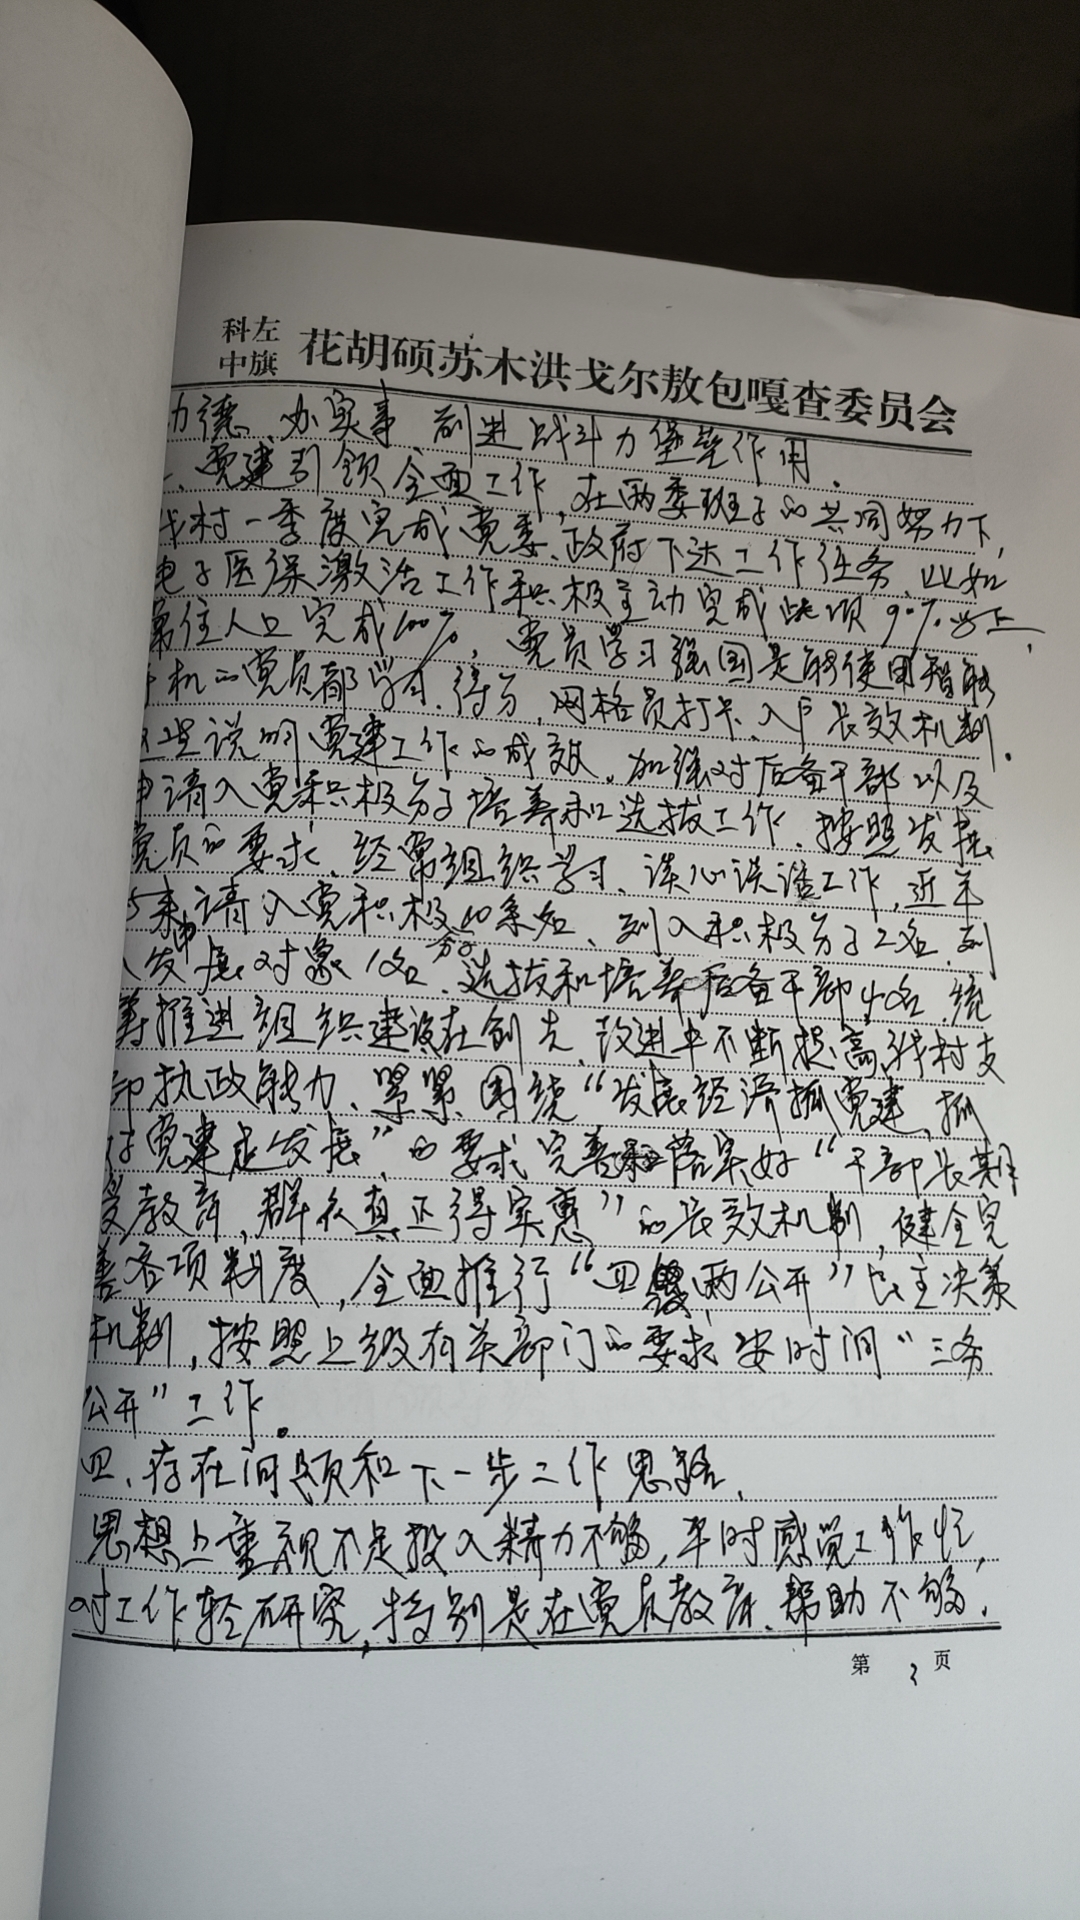 科左中旗 花胡硕苏木洪戈尔敖包嘎查委员会
办实事 战斗力堡垒作用.
、党建引领全面工作,在两委班子的共同努力下,
我村一季度完成党委、政府下达工作任务 比如
电子医保激活工作积极主动完成此项90%以上,
常住人口完成100%, 党员学习强国是能使用智能
手机的党员都学习、得分, 网格员打卡、入户长效机制.
这些说明党建工作的成效。加强对后备干部以及
申请入党积极分子培养和选拔工作、按照发展
党员的要求、经常组织学习、谈心谈话工作, 近年
来申请入党积极分子10余名、列入积极分子2名、列
入发展对象1名、选拔和培养后备干部4名、统
筹推进组织建设在创先、改进中不断提高我村支
部执政能力、紧紧围绕“发展经济抓党建, 抓
好党建促发展”的要求完善和落实好“干部长期
受教育, 群众真正得实惠”的长效机制, 健全完
善各项制度, 全面推行“四议两公开”民主决策
机制, 按照上级有关部门的要求按时间“三务
公开”工作。
四、存在问题和下一步工作思路、
思想上重视不足投入精力不够, 平时感觉工作忙,
对工作轻研究, 特别是在党员教育、帮助不够,
第 3 页